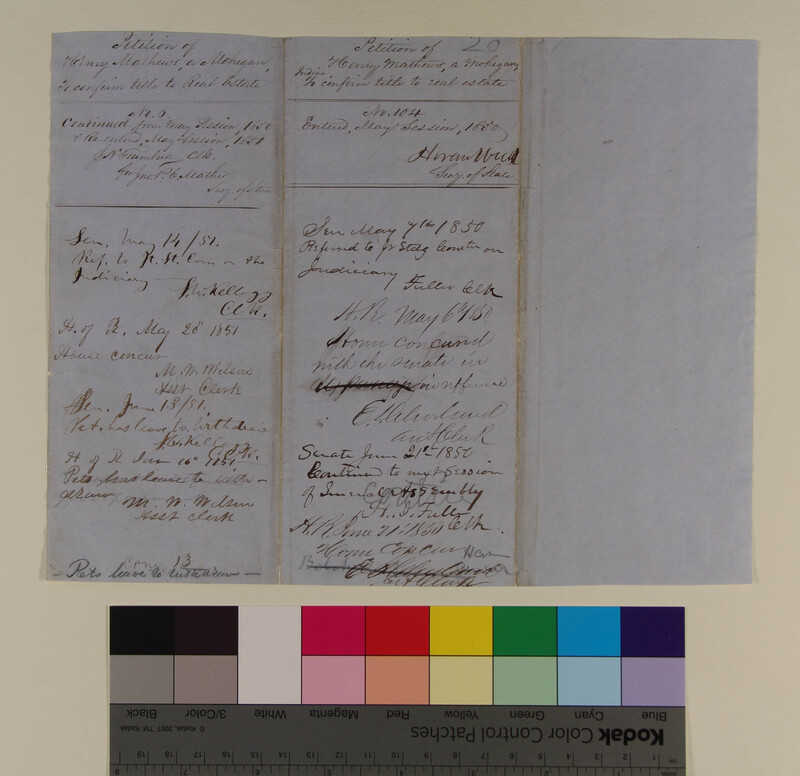 Petition of
Henry Mathews, a Mohegan,
To confirm title to Real Estate
No. 6
Continued from May Session, 1850
& Re-entered, May Session, 1851
J. H. Trumbull Clk.
for Jno. P. C. Mather
Secy. of State
Sen. May 14/51.
Ref. to Jt. St. Com on the
Judiciary
S. W. Kellogg
Clk.
H. of R. May 20 1851
House concur
M. W. Wilson
Asst Clerk
Sen. June 13/51.
Pet. has leave to Withdraw
S. W. Kellogg
Clk.
H of R Jun 16 1851
Petr has leave to with-
draw
M. W. Wilson
Asst Clerk
13
- Petr leave to withdraw -
20
Petition of
Henry Mathews, a Mohegan
Indian
To confirm title to real estate
No. 104
Entered, May Session, 1850
Secy. of State
Sen May 7th 1850
Referred to Jt Stdg Comtee on
Judiciary
Fuller Clk
H.R. May 1850
House concurred
with the senate in
reference
E. Cleveland
asst Clerk
Senate June 21st 1850
Continued to next session
of General Assembly
Fuller
Clk.
H.R. June 21st 1850
House concur
Asst Clerk
Blue
Cyan
Green
Yellow
Red
Magenta
White
3/Color
Black
Kodak Color Control Patches
© Kodak, 2007 TM: Kodak
cm 1 2 3 4 5 6 7 8 9 10 11 12 13 14 15 16 17 18 19